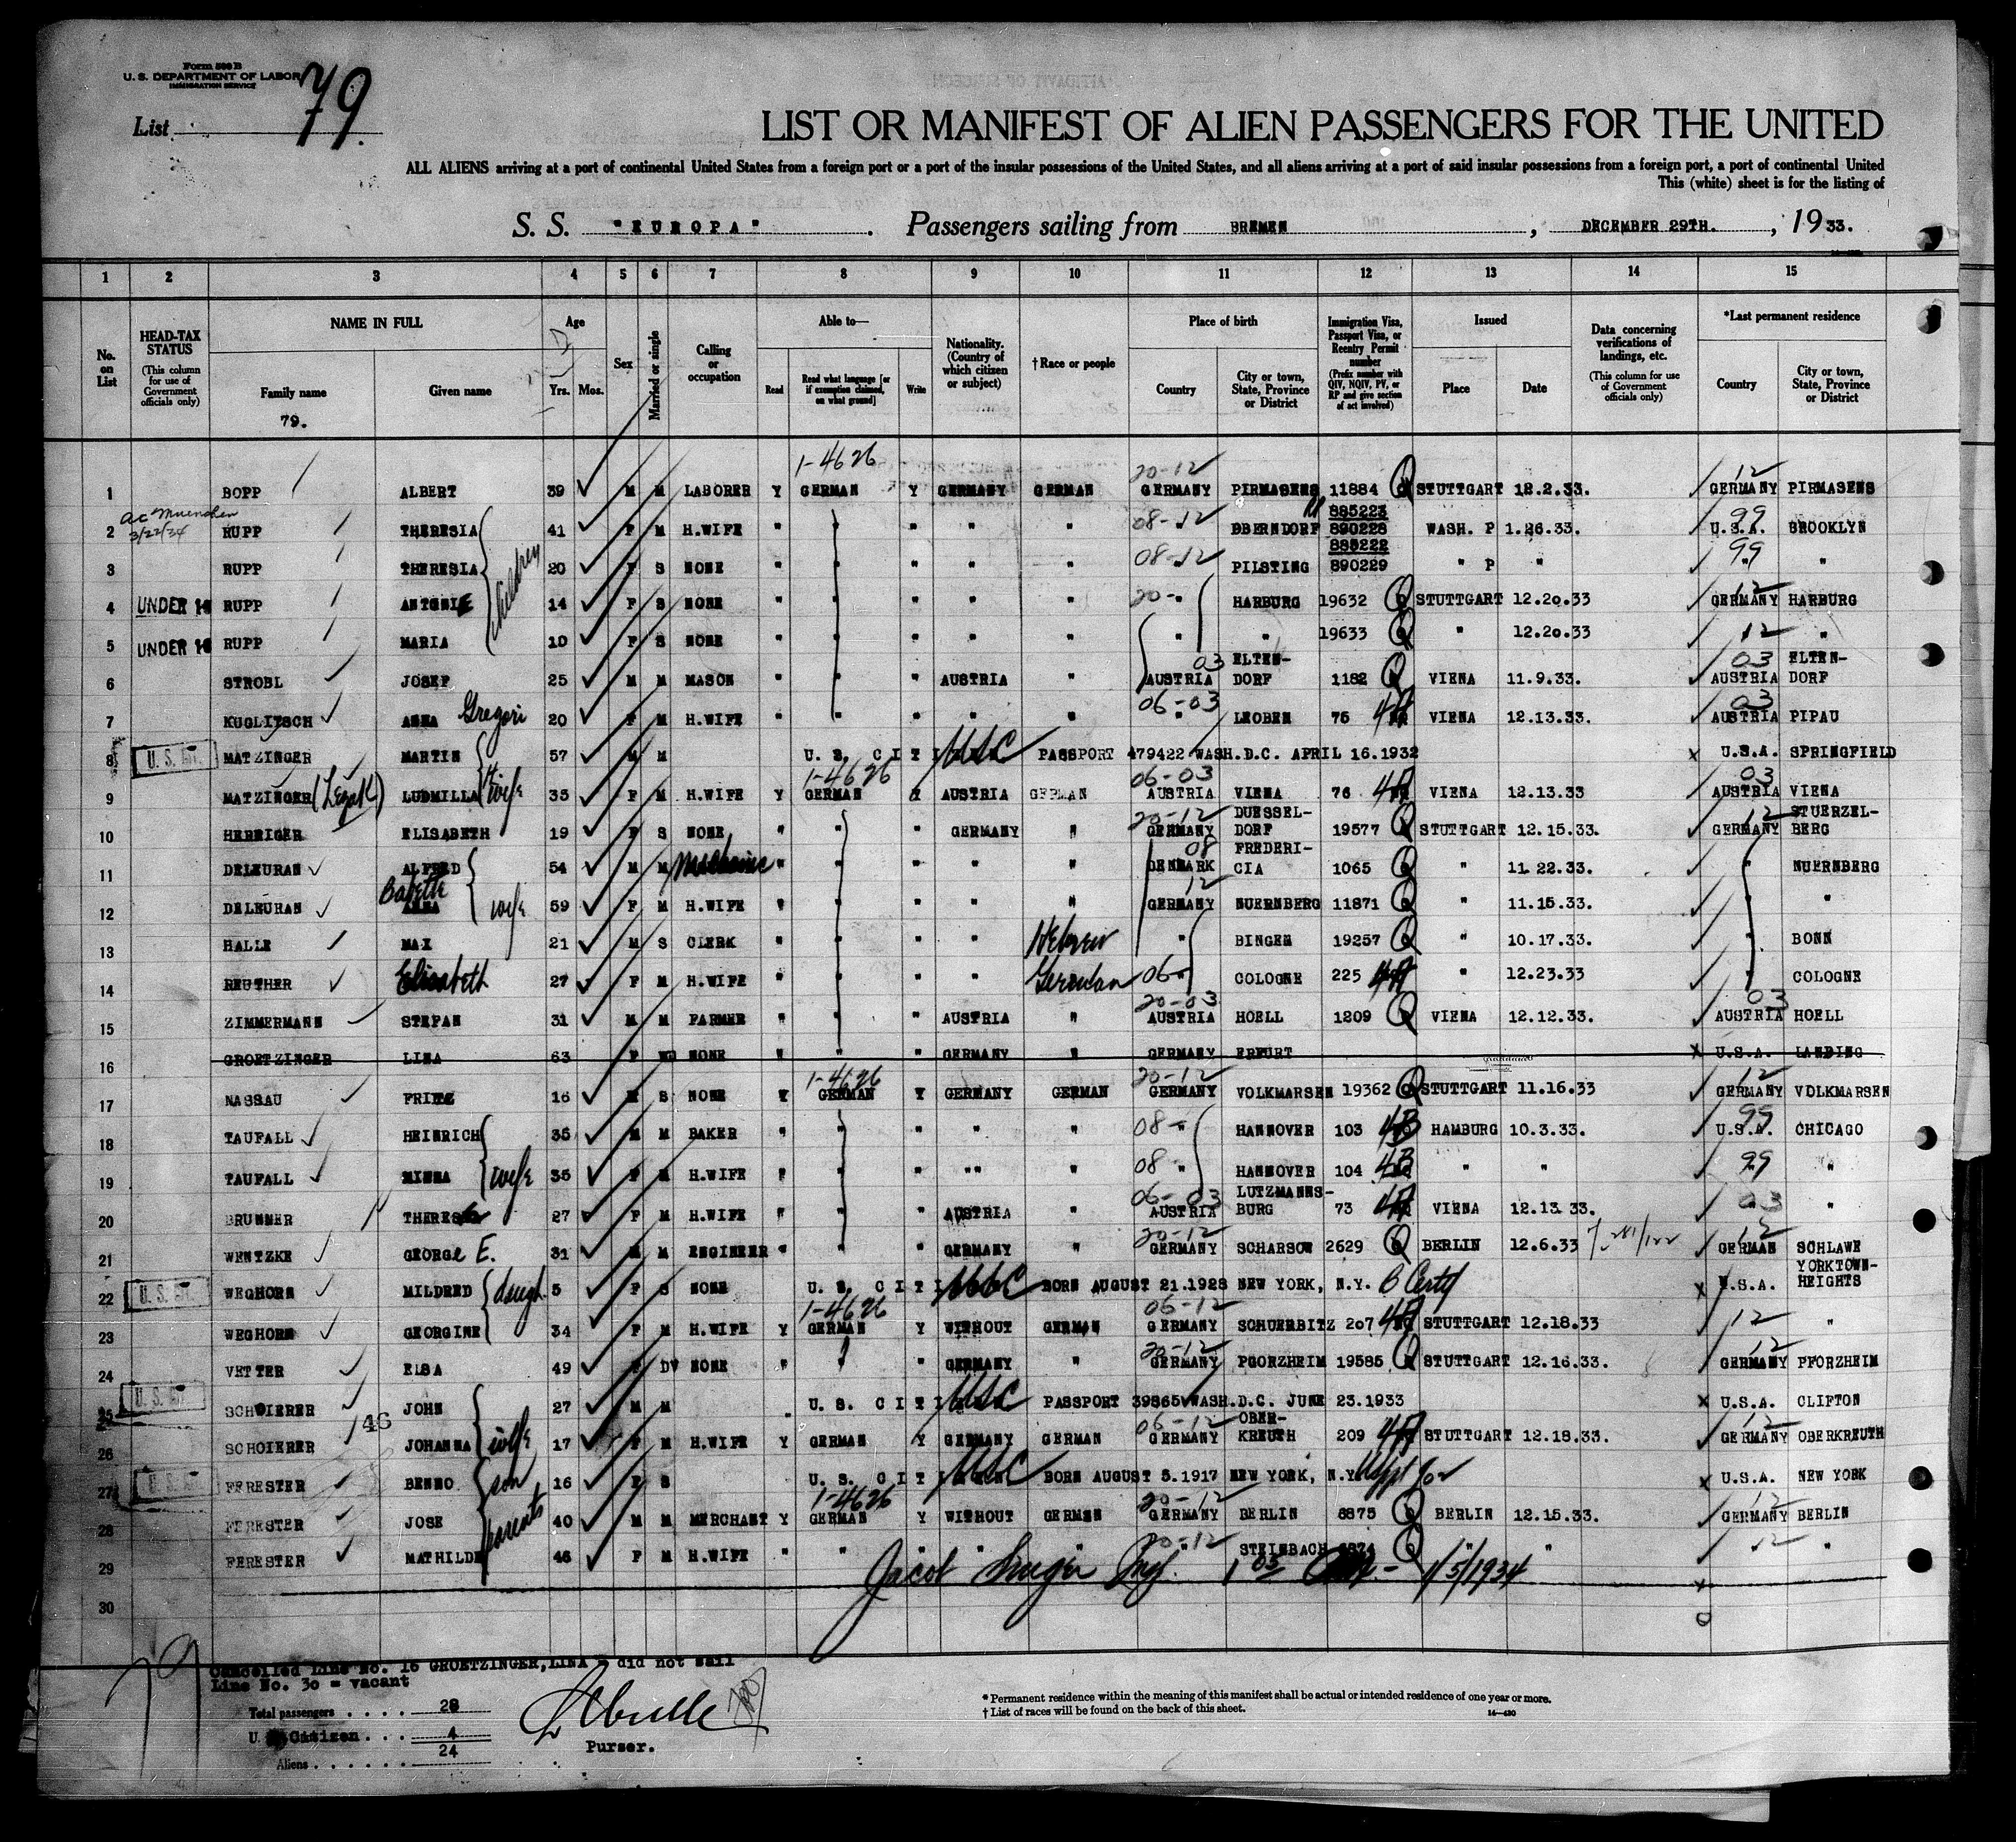 Form 500 B
U. S. DEPARTMENT OF LABOR
IMMIGRATION SERVICE
List 79.
LIST OR MANIFEST OF ALIEN PASSENGERS FOR THE UNITED
ALL ALIENS arriving at a port of continental United States from a foreign port or a port of the insular possessions of the United States, and all aliens arriving at a port of said insular possessions from a foreign port, a port of continental United
This (white) sheet is for the listing of
S. S. "EUROPA" . Passengers sailing from BREMEN , DECEMBER 29TH. , 19 33.
1 2 3 4 5 6 7 8 9 10 11 12 13 14 15
No. on List
HEAD-TAX STATUS (This column for use of Government officials only)
NAME IN FULL
Family name
79.
Given name
Age
Yrs. Mos.
Sex
Married or single
Calling or occupation
Able to—
Read
Read what language [or if exemption claimed, on what ground]
Write
Nationality. (Country of which citizen or subject)
† Race or people
Place of birth
Country
City or town, State, Province or District
Immigration Visa, Passport Visa, or Reentry Permit number
(Prefix number with QIV, NQIV, PV, or RP and give section of act involved)
Issued
Place
Date
Data concerning verifications of landings, etc.
(This column for use of Government officials only)
*Last permanent residence
Country
City or town, State, Province or District
1-4626 20-12 12
1 BOPP ALBERT 39 M M LABORER Y GERMAN Y GERMANY GERMAN GERMANY PIRMASENS 11884 Q STUTTGART 12.2.33. GERMANY PIRMASENS
ac Muenchen 3/22/34
885223 08-12 99
2 RUPP THERESIA 41 F M H.WIFE " " " " " OBERNDORF 890228 WASH. P 1.26.33. U.S.A. BROOKLYN
885222
3 RUPP THERESIA children 20 F S NONE " " " " " 08-12 PILSTING 890229 " P " 99 "
4 UNDER 16 RUPP ANTONIE 14 F S NONE " " " " " 20- " HARBURG 19632 Q STUTTGART 12.20.33 12 GERMANY HARBURG
5 UNDER 16 RUPP MARIA 10 F S NONE " " " " " " " 19633 Q " 12.20.33 12 "
6 STROBL JOSEF 25 M M MASON " " " AUSTRIA " 03 AUSTRIA ELTEN-DORF 1182 Q VIENA 11.9.33. 03 AUSTRIA ELTEN-DORF
7 KUGLITSCH ANNA Gregori 20 F M H.WIFE " " " " " 06-03 " LEOBEN 75 4A VIENA 12.13.33. 03 AUSTRIA PIPAU
8 U.S. CIT. MATZINGER MARTIN 57 M M U. S. CITI USC PASSPORT 479422 WASH.D.C. APRIL 16.1932 x U.S.A. SPRINGFIELD
9 MATZINGER (Lezak) LUDMILLA wife 35 F M H.WIFE Y 1-4626 GERMAN Y AUSTRIA GERMAN 06-03 AUSTRIA VIENA 76 4A VIENA 12.13.33 03 AUSTRIA VIENA
10 HERRIGER ELISABETH 19 F S NONE " " " GERMANY " 20-12 GERMANY DUESSEL-DORF 19577 Q STUTTGART 12.15.33. 12 GERMANY STUERZEL-BERG
11 DELEURAN ALFRED 54 M M Mechanic " " " " " 08 DENMARK FREDERI-CIA 1065 Q " 11.22.33. NUERNBERG
12 DELEURAN Babette ANNA wife 59 F M H.WIFE " " " " 12 GERMANY NUERNBERG 11871 Q " 11.15.33. " "
13 HALLE MAX 21 M S CLERK " " " " Hebrew " BINGEN 19257 Q " 10.17.33. " BONN
14 REUTHER Elisabeth 27 F M H.WIFE " " " " German 06- " COLOGNE 225 4A " 12.23.33 " COLOGNE
15 ZIMMERMANN STEFAN 31 M M FARMER " " " AUSTRIA " 20-03 AUSTRIA HOELL 1209 Q VIENA 12.12.33. 03 AUSTRIA HOELL
16 GROETZINGER LINA 63 F WD NONE " " " GERMANY " GERMANY ERFURT x U.S.A. LANDING
17 NASSAU FRITZ 16 M S NONE Y 1-4626 GERMAN Y GERMANY GERMAN 20-12 GERMANY VOLKMARSEN 19362 Q STUTTGART 11.16.33 12 GERMANY VOLKMARSEN
18 TAUFALL HEINRICH 35 M M BAKER " " " " " 08- " HANNOVER 103 4B HAMBURG 10.3.33. 99 U.S.A. CHICAGO
19 TAUFALL MINNA wife 35 F M H.WIFE " " " "" " 08 " HANNOVER 104 4B " " 99 "
20 BRUNNER THERESIA 27 F M H.WIFE " " " AUSTRIA " 06-03 AUSTRIA LUTZMANNS-BURG 73 4A VIENA 12.13.33. 03 "
21 WENTZKE GEORGE E. 31 M M ENGINEER " " " GERMANY " 20-12 GERMANY SCHARSOW 2629 Q BERLIN 12.6.33 12 GERMAN SCHLAWE
22 U.S. CIT. WEGHORN MILDRED daugh. 5 F S NONE U. S. CITI USC BORN AUGUST 21.1928 NEW YORK, N.Y. B Certf x U.S.A. YORKTOWN-HEIGHTS
23 WEGHORN GEORGINE 34 F M H.WIFE Y 1-4626 GERMAN Y WITHOUT GERMAN 06-12 GERMANY SCHUERBITZ 207 4A STUTTGART 12.18.33 12 "
24 VETTER ELSA 49 F DV NONE " " " GERMANY " 20-12 GERMANY PGORZHEIM 19585 Q STUTTGART 12.16.33. 12 GERMANY PFORZHEIM
25 U.S. CIT. SCHOIERER JOHN 27 M M U. S. CITI USC PASSPORT 39865 WASH.D.C. JUNE 23.1933 x U.S.A. CLIFTON
26 SCHOIERER 46 JOHANNA wife 17 F M H.WIFE Y GERMAN Y GERMANY GERMAN 06-12 GERMANY OBER-KREUTH 209 4A STUTTGART 12.18.33. 12 GERMANY OBERKREUTH
27 U.S. CIT. FERESTER BENNO son 16 F S U. S. CITI USC BORN AUGUST 5.1917 NEW YORK, N.Y. x U.S.A. NEW YORK
28 FERESTER JOSE parents 40 M M MERCHANT Y 1-4626 GERMAN Y WITHOUT GERMSN 20-12 GERMANY BERLIN 8875 Q BERLIN 12.15.33. 12 GERMANY BERLIN
29 FERESTER MATHILDE 46 F M H.WIFE " " " " " 20-12 STEINBACH 8874 Q " " 12 "
Jacob 1/5/1934
30
79
Cancelled Line No. 16 GROETZINGER,LINA = did not sail
Line No. 30 = vacant
Total passengers . . . . 28
U. S. Citizen . . . 4
Aliens . . . . . . 24
Purser.
* Permanent residence within the meaning of this manifest shall be actual or intended residence of one year or more.
† List of races will be found on the back of this sheet.
14—430